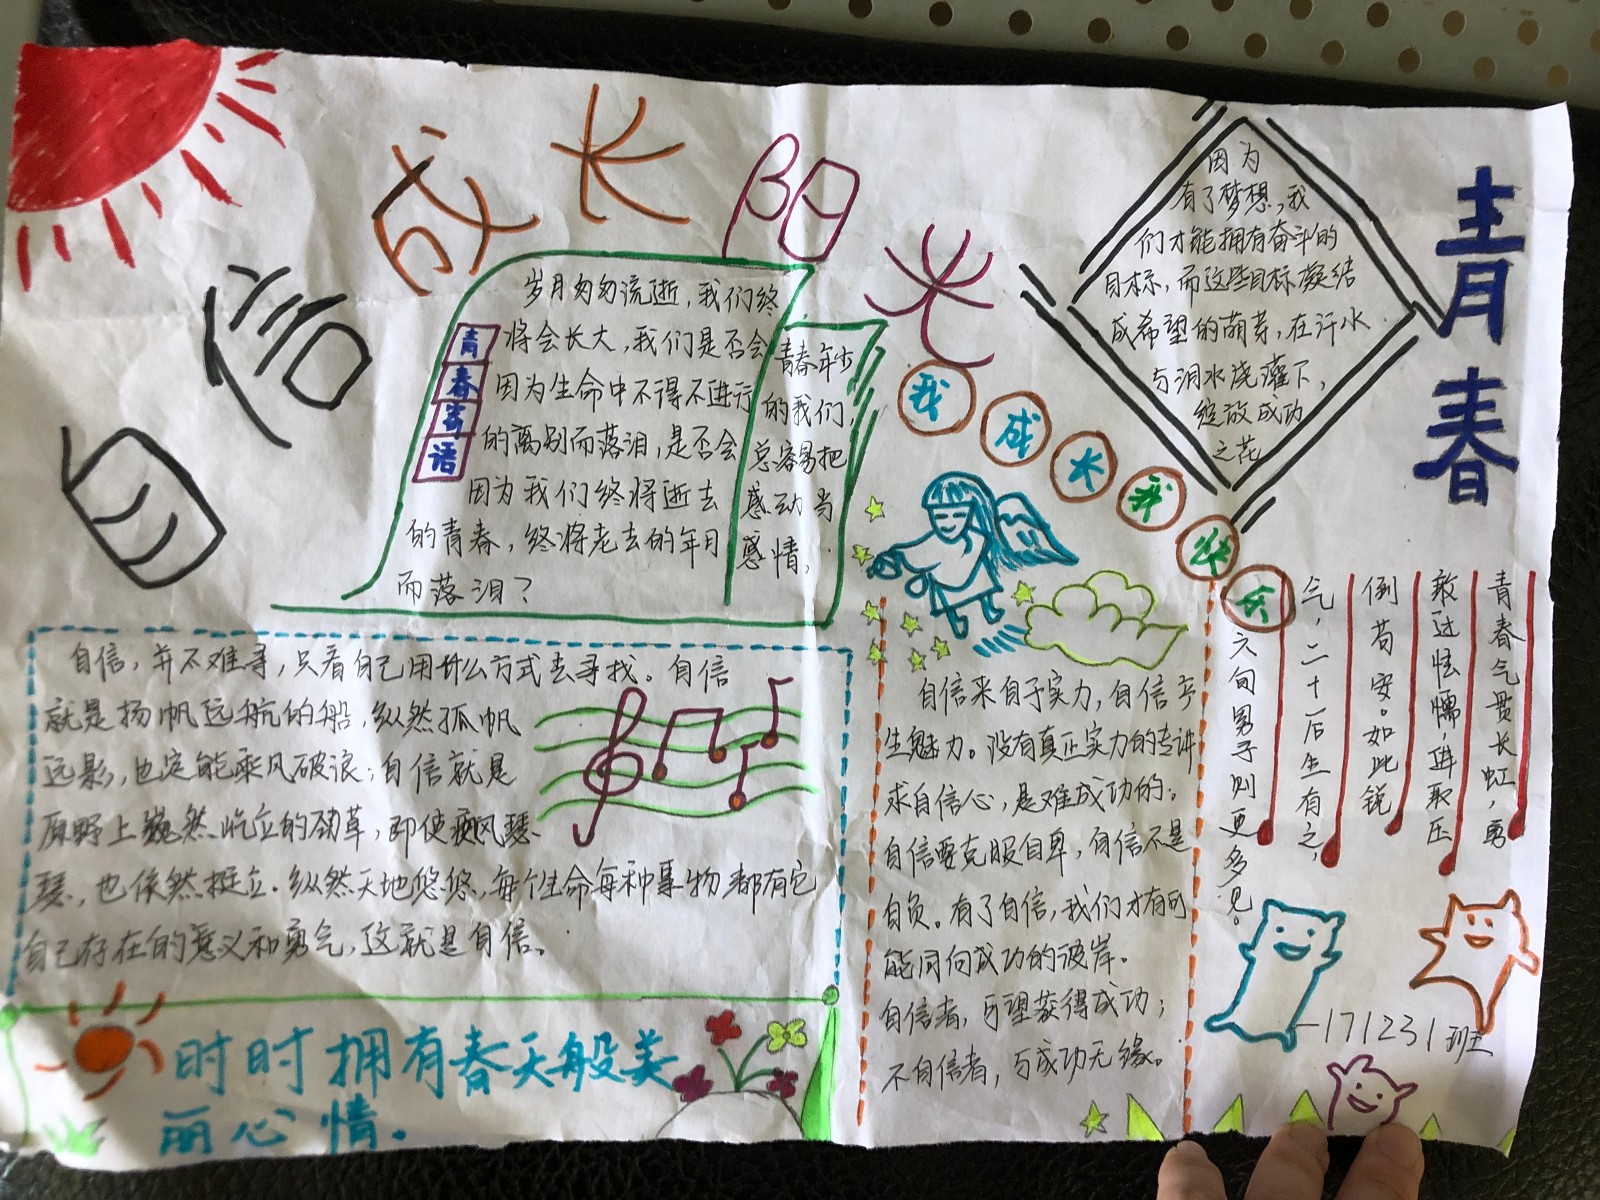 自信
成长
阳光
青春
因为
有了梦想，我
们才能拥有奋斗的
目标，而这些目标凝结
成希望的萌芽，在汗水
与泪水浇灌下，
绽放成功
之花
青春寄语
岁月匆匆流逝，我们终
将会长大，我们是否会
因为生命中不得不进行
的离别而落泪，是否会
因为我们终将逝去
的青春，终将老去的年月
而落泪？
青春年少
的我们，
总容易把
感动当
感情，
我成长我快乐
自信，并不难寻，只看自己用什么方式去寻找。自信
就是扬帆远航的船，纵然孤帆
远影，也定能乘风破浪；自信就是
原野上巍然屹立的劲草，即使疾风瑟
瑟，也依然挺立.纵然天地悠悠，每个生命每种事物都有它
自己存在的意义和勇气，这就是自信。
时时拥有春天般美
丽心情.
自信来自于实力，自信亭
生魅力。没有真正实力的去讲
求自信心，是难成功的。
自信要克服自卑，自信不是
自负。有了自信，我们才有可
能同向成功的彼岸。
自信者，可望获得成功；
不自信者，与成功无缘。
青春气贯长虹，勇
敢过怯懦，进取压
倒苟安。如此锐
气，二十后生有之，
六旬男子则更多见。
171231班